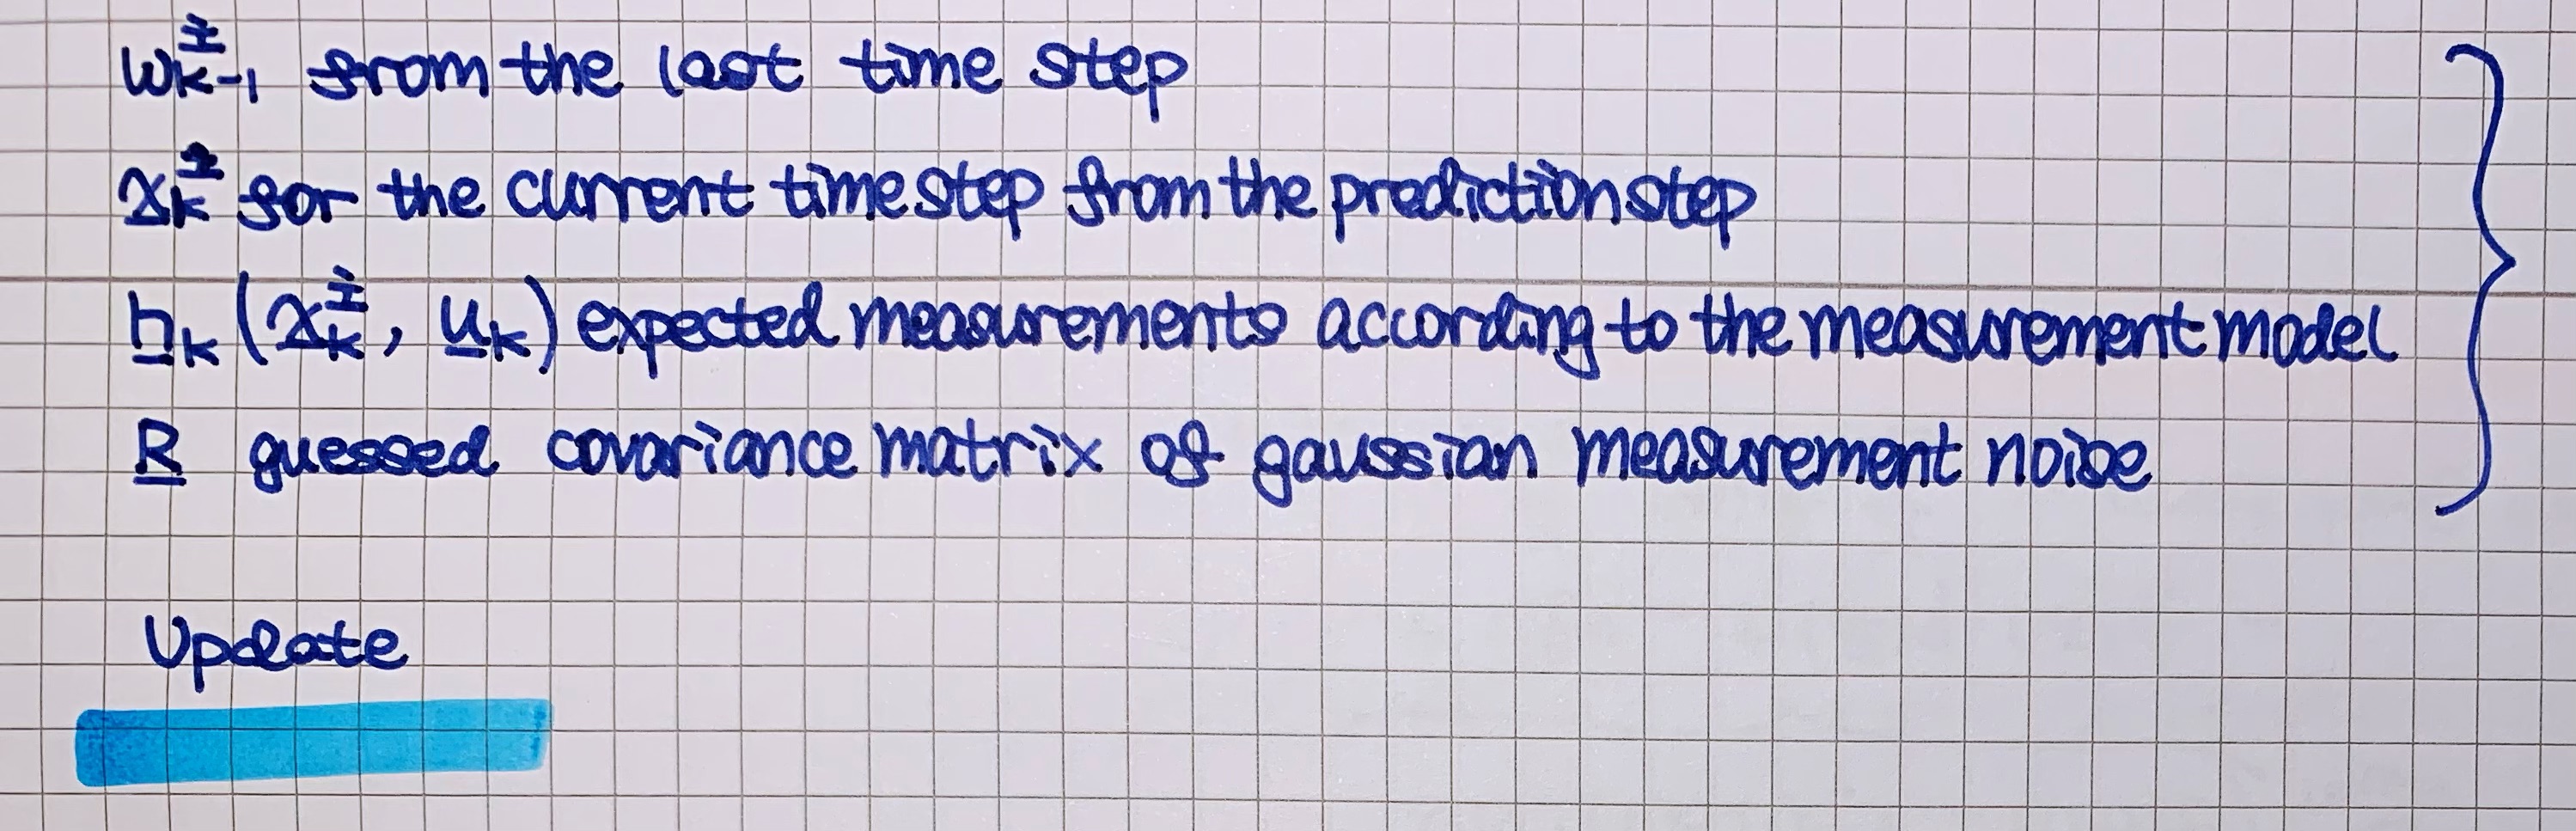 w_{k-1}^i from the last time step
x_k^i for the current time step from the prediction step
h_k (x_k^i, u_k) expected measurements according to the measurement model
R guessed covariance matrix of gaussian measurement noise
Update